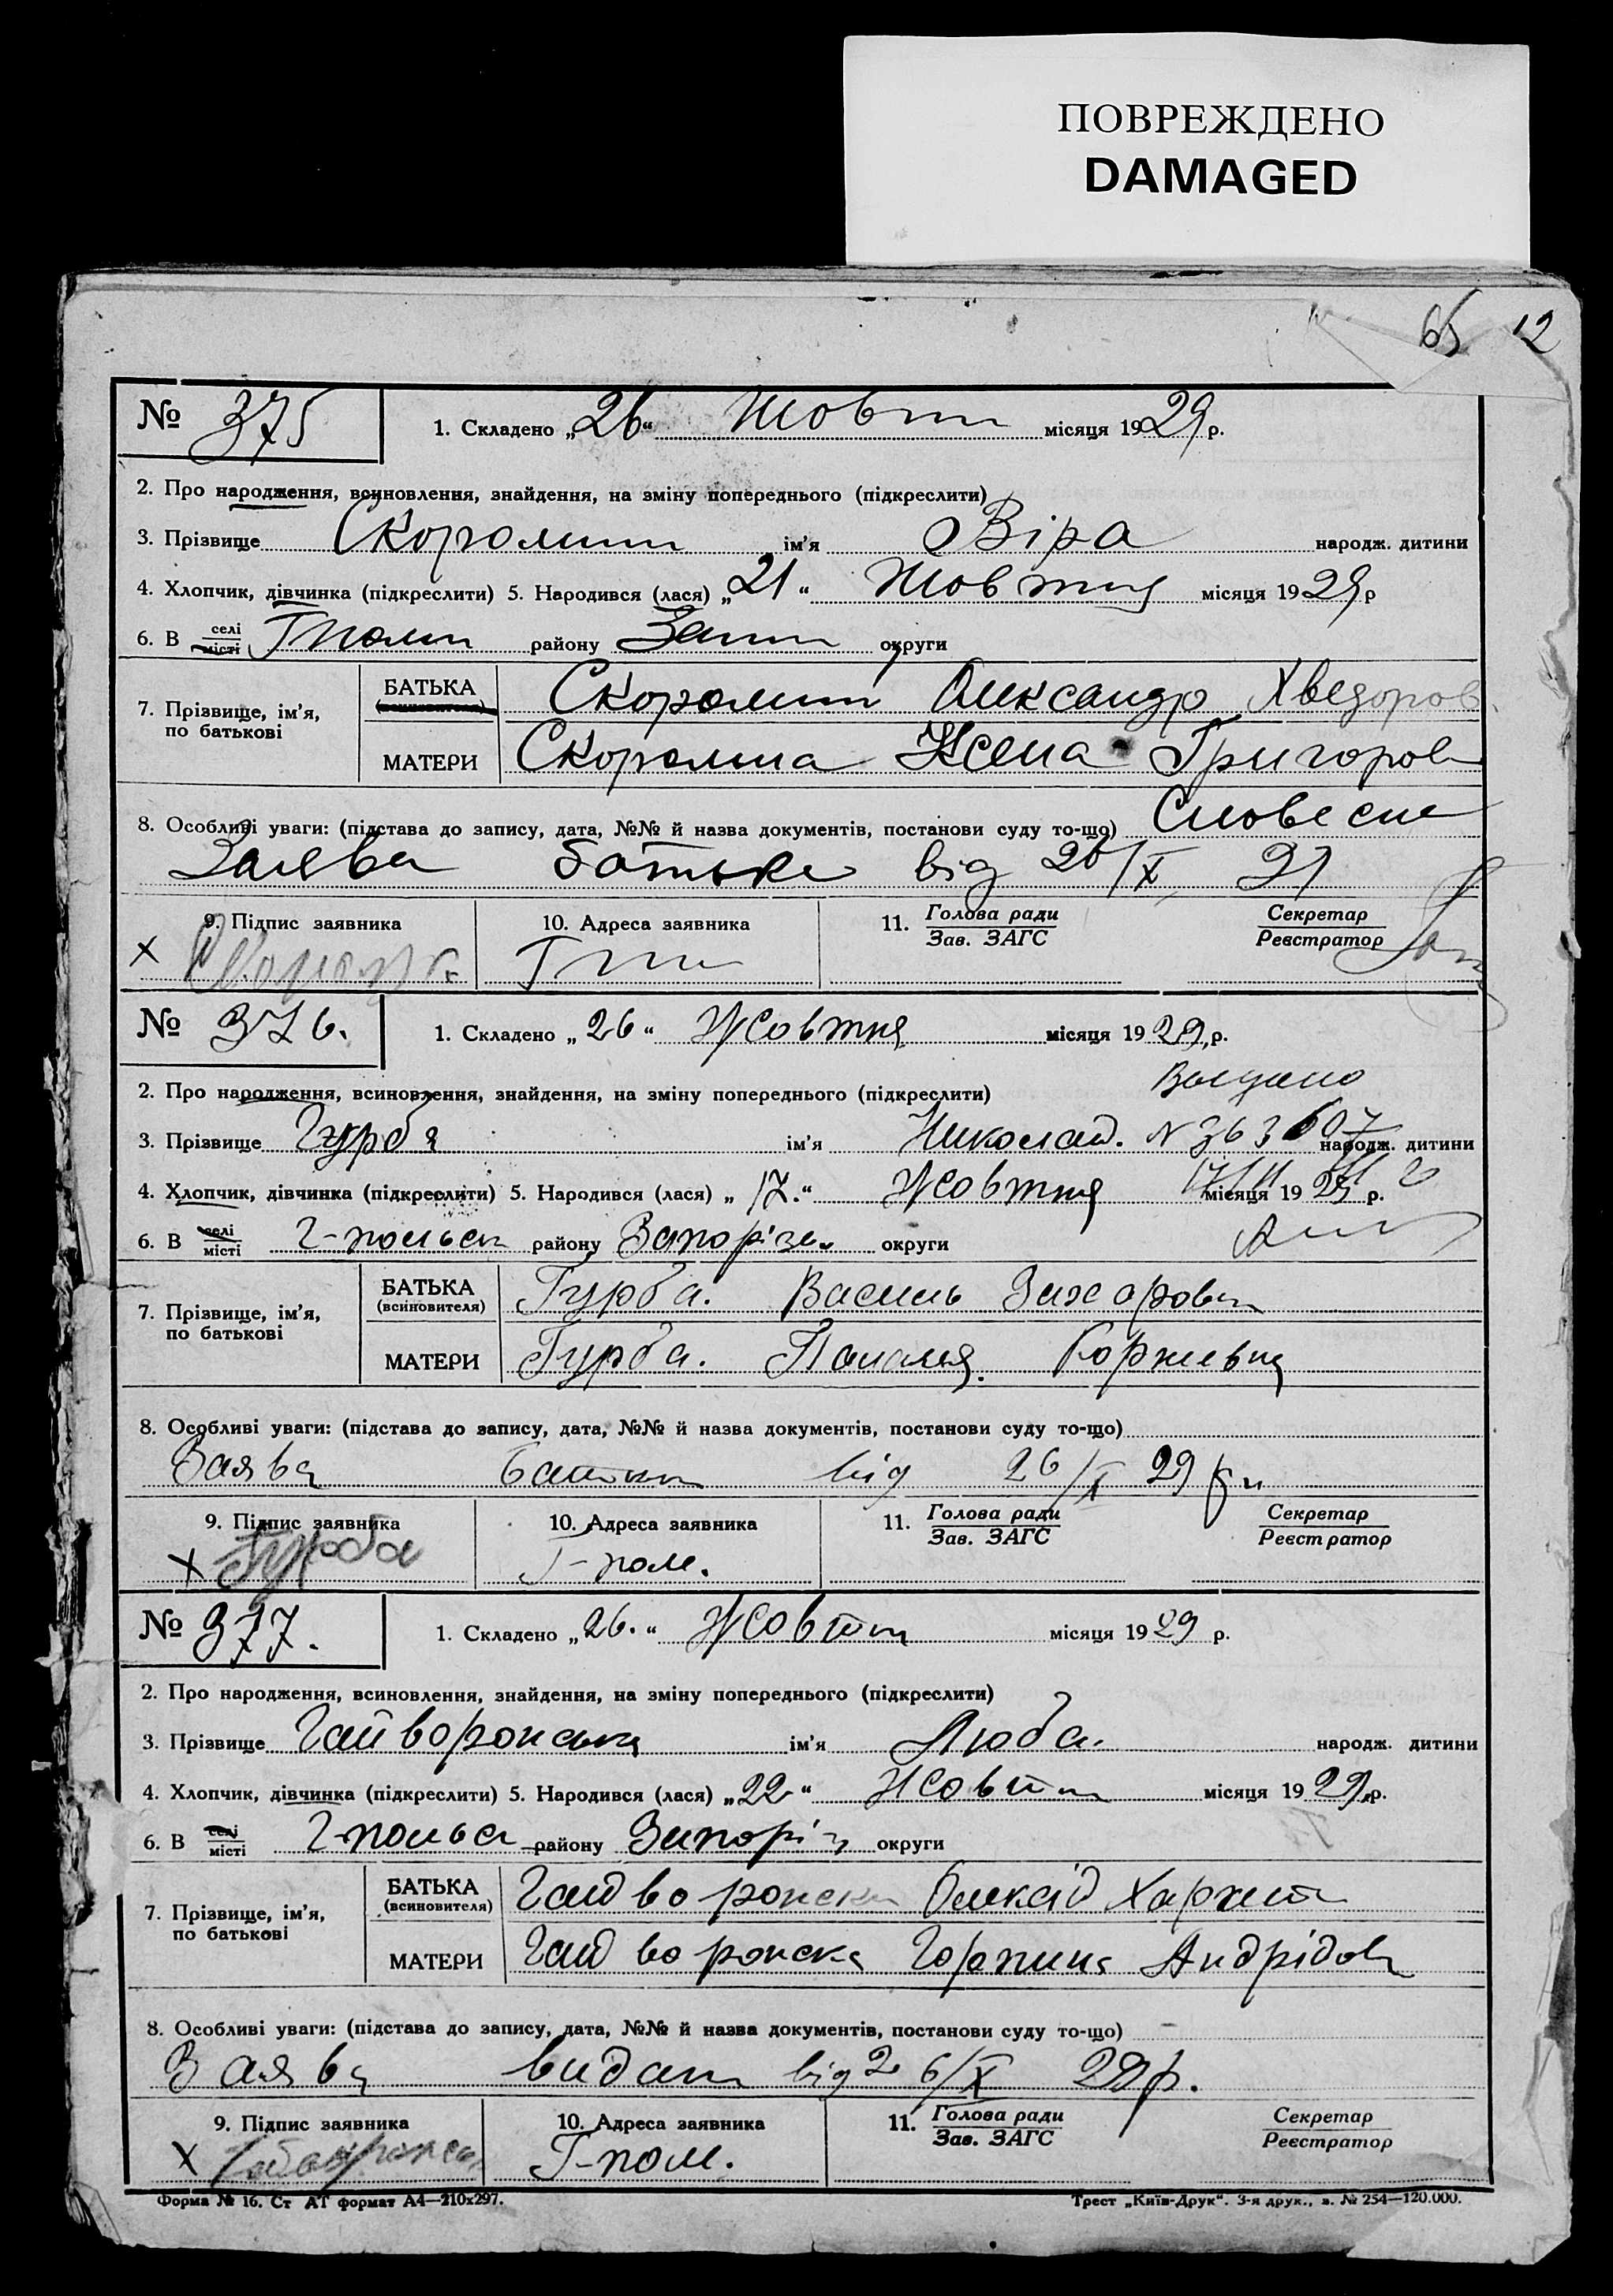 ПОВРЕЖДЕНО
DAMAGED
65 12
№ 375 1. Складено „26“ Жовтн місяця 1929 р.
2. Про народження, всиновлення, знайдення, на зміну попереднього (підкреслити)
3. Прізвище ім'я Віра народж. дитини
4. Хлопчик, дівчинка (підкреслити) 5. Народився (лася) „21“ Жовтня місяця 1929 р
6. В селі місті району Запи округи
7. Прізвище, ім'я, по батькові
БАТЬКА (всиновителя) Олександр Хведоров
МАТЕРИ Ксена Григоров
8. Особливі уваги: (підстава до запису, дата, №№ й назва документів, постанови суду то-що) Словесне
Заява батька від 26/X 29
9. Підпис заявника 10. Адреса заявника 11. Голова ради Зав. ЗАГС Секретар Реєстратор
х
№ 376. 1. Складено „26“ Жовтня місяця 1929 р.
2. Про народження, всиновлення, знайдення, на зміну попереднього (підкреслити)
3. Прізвище Гурба ім'я Николай. N 363607 народж. дитини
4. Хлопчик, дівчинка (підкреслити) 5. Народився (лася) „17.“ Жовтня місяця 1929 р.
6. В селі місті Г-польск району Запоріз округи
7. Прізвище, ім'я, по батькові
БАТЬКА (всиновителя) Гурба. Василь Захарович
МАТЕРИ Гурба.
8. Особливі уваги: (підстава до запису, дата, №№ й назва документів, постанови суду то-що)
Заява Батька від 26/X 29 р
9. Підпис заявника 10. Адреса заявника 11. Голова ради Зав. ЗАГС Секретар Реєстратор
х Гурба Г-пол.
№ 377. 1. Складено „26.“ Жовтн місяця 1929 р.
2. Про народження, всиновлення, знайдення, на зміну попереднього (підкреслити)
3. Прізвище Гайворонська ім'я Люба. народж. дитини
4. Хлопчик, дівчинка (підкреслити) 5. Народився (лася) „22“ Жовтн місяця 1929 р.
6. В селі місті Г-польс району Запоріз округи
7. Прізвище, ім'я, по батькові
БАТЬКА (всиновителя) Гайворонски Олексій
МАТЕРИ Гайворонска Горпина Андрійов
8. Особливі уваги: (підстава до запису, дата, №№ й назва документів, постанови суду то-що)
Заява від 26/X 29 р.
9. Підпис заявника 10. Адреса заявника 11. Голова ради Зав. ЗАГС Секретар Реєстратор
х Г-пол.
Форма № 16. Ст АТ формат А4—210х297. Трест „Київ-Друк“. 3-я друк., з. № 254—120.000.